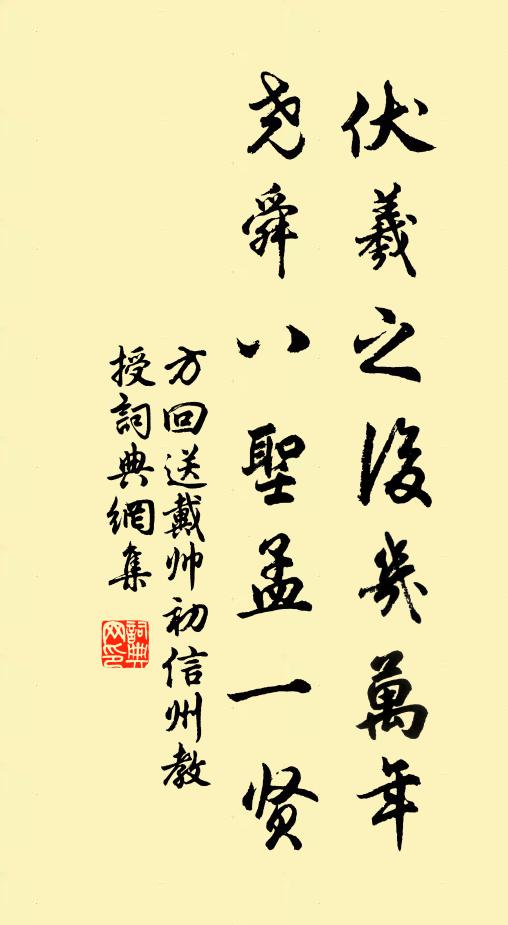 伏羲之後幾萬年
尧舜八聖孟一贤
方回送戴帅初信州教
授詞典網集
詞典
网印